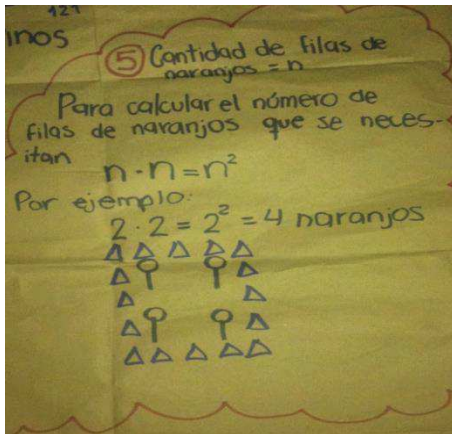 121
inos
5 Cantidad de filas de
naranjos = n
Para calcular el número de
filas de naranjos que se neces-
itan
n · n = n²
Por ejemplo:
2 · 2 = 2² = 4 naranjos